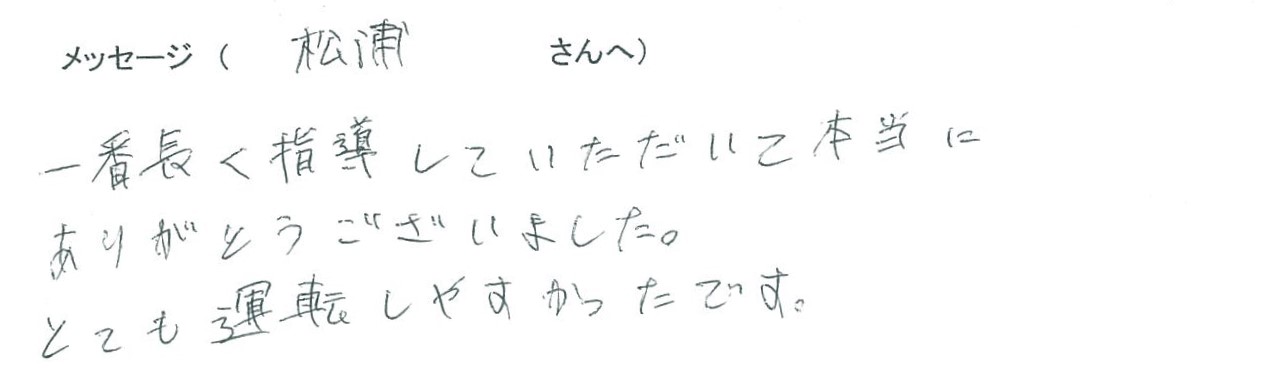 メッセージ（ 松浦 さんへ）
一番長く指導していただいて本当に
ありがとうございました。
とても運転しやすかったです。